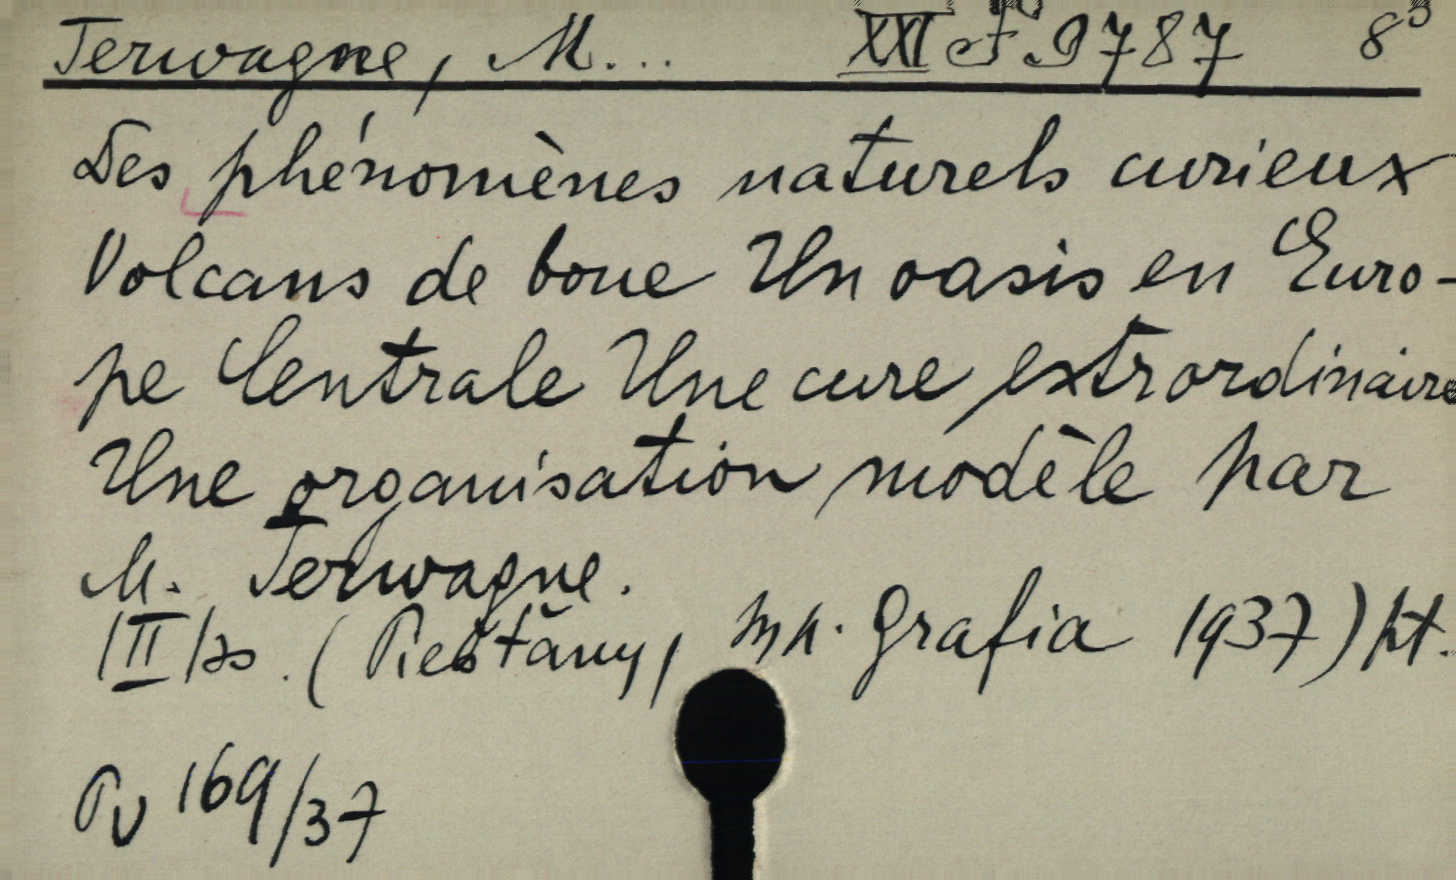 Terwagne, M... XXI F 9787 8°
Des phénomènes naturels curieux
Volcans de boue Un oasis en Euro-
pe Centrale Une cure extrordinaire
Une organisation modèle par
M. Terwagne.
|II| s. (Piešťany, Imp. Grafia 1937) pt.
Pv 169/37